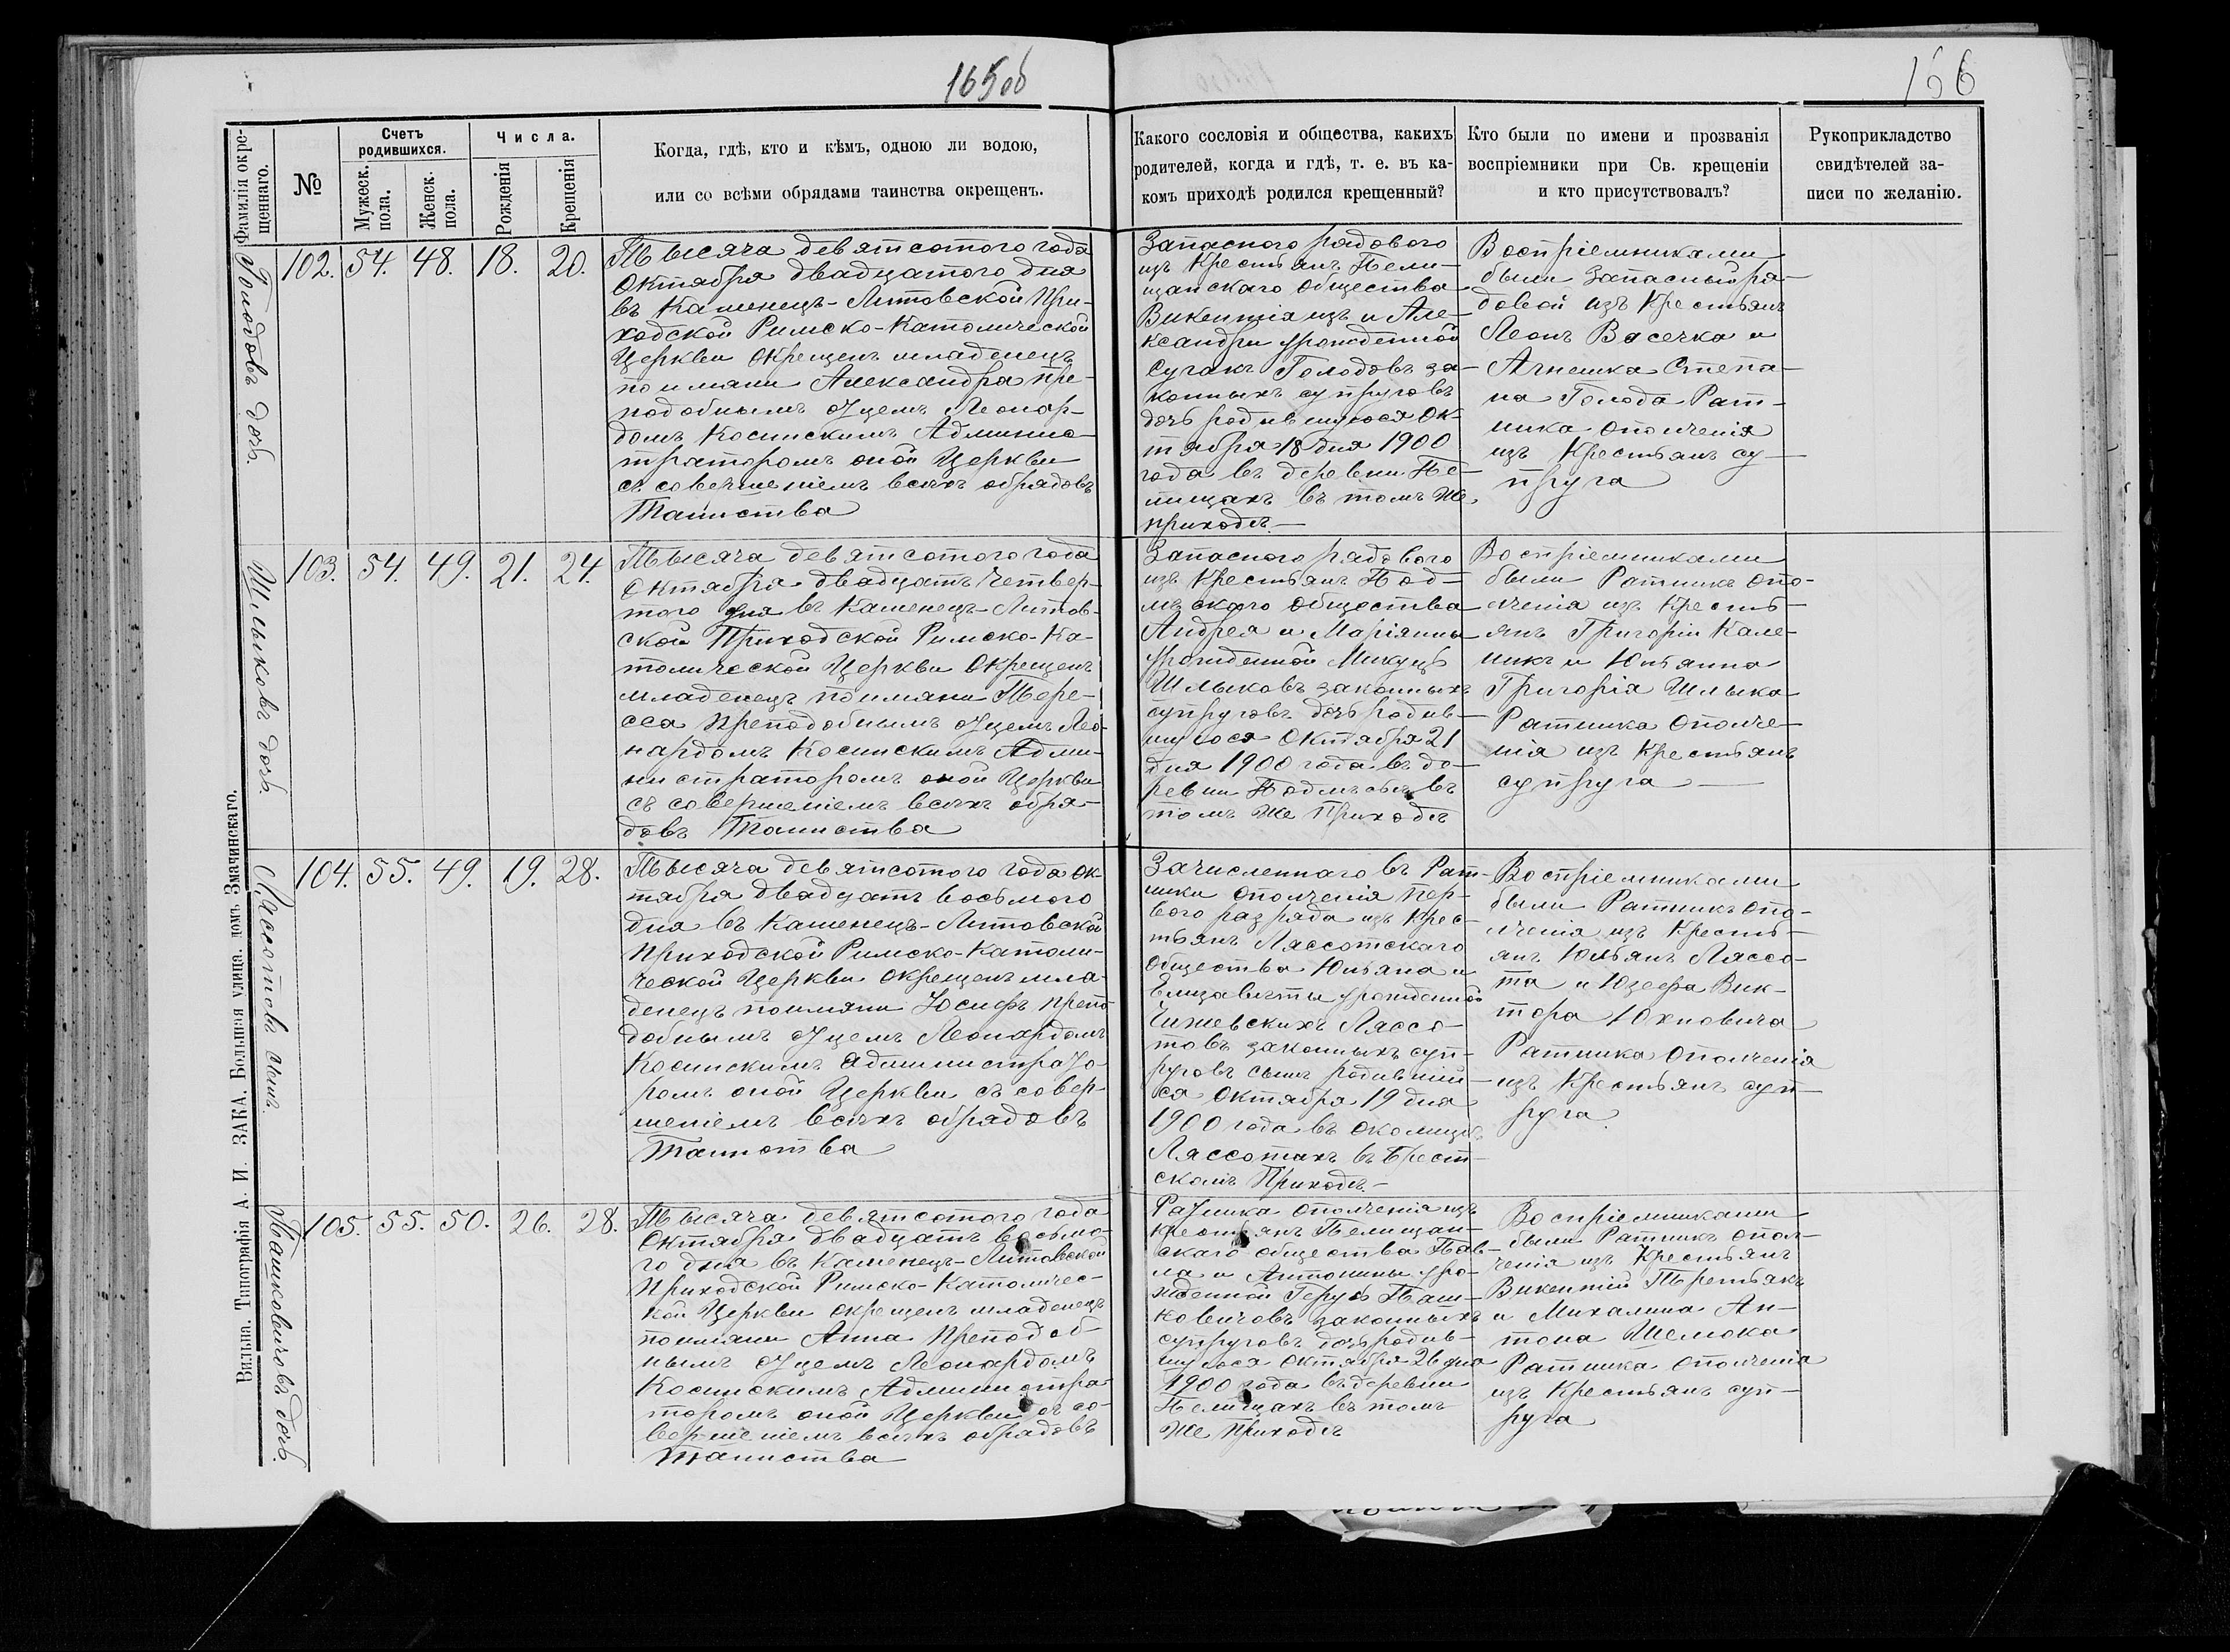 165об
166
Фамилія окре-
щеннаго.
№
Счетъ
родившихся.
Мужеск.
пола.
Женск.
пола.
Числа.
Рожденія
Крещенія
Когда, гдѣ, кто и кѣмъ, одною ли водою,
или со всѣми обрядами таинства окрещенъ.
Какого сословія и общества, какихъ
родителей, когда и гдѣ, т. е. въ ка-
комъ приходѣ родился крещенный?
Кто были по имени и прозванія
воспріемники при Св. крещеніи
и кто присутствовалъ?
Рукоприкладство
свидѣтелей за-
писи по желанію.
Голодовъ дочь.
102. 54. 48. 18. 20.
Тысяча девятсотого года
Октября двадцатого дня
въ Каменецъ-Литовской При-
ходской Римско-Католической
Церкви окрещенъ младенецъ
по имяни Александра пре-
подобнымъ Отцемъ Леонар-
домъ Косинскимъ Админис-
траторомъ оной Церкви
съ совершеніемъ всѣхъ обрядовъ
Таинства
Запасного рядового
изъ Крестьянъ Пели-
щанскаго общества
Викентія изъ и Але-
ксандры урожденной
Сугакъ Голодовъ за-
конныхъ супруговъ
дочь родившуюся Ок-
тября 18 дня 1900
года въ деревни Пе-
лищахъ въ томъ же
приходѣ.
Воспріемниками
были Запасный ря-
довой изъ Крестьянъ
Леонъ Васечка и
Агнешка Степа-
на Голода Рат-
ника ополченія
изъ Крестьянъ су-
пруга
Шлыковъ дочь.
103. 54. 49. 21. 24.
Тысяча девятсотого года
Октября двадцать четвер-
того дня въ Каменецъ-Литов-
ской Приходской Римско-Ка-
толической Церкви окрещенъ
младенецъ по имяни Тере-
сса преподобнымъ Отцемъ Лео-
нардомъ Косинскимъ Адми-
нистраторомъ оной Церкви
съ совершеніемъ всѣхъ обря-
довъ Таинства
Запасного рядового
изъ Крестьянъ Под-
лѣскаго общества
Андрея и Маріянны
урожденной Микуцъ
Шлыковъ законныхъ
супруговъ дочь родив-
шуюся Октября 21
дня 1900 года въ де-
ревни въ
томъ же Приходѣ
Воспріемниками
были Ратникъ опо-
лченія изъ Кресть-
янъ Григорій Кале-
никъ и Юльянна
Григорія Шлыка
Ратника ополче-
нія изъ Крестьянъ
супруга
Лясотовъ сынъ.
104. 55. 49. 19. 28.
Тысяча девятсотого года Ок
тября двадцать восьмого
дня въ Каменецъ-Литовской
Приходской Римско-Католи-
ческой Церкви окрещенъ мла
денецъ по имяни Юсифъ препо
добнымъ Отцемъ Леонардомъ
Косинскимъ Администрато-
ромъ оной Церкви съ совер-
шеніемъ всѣхъ обрядовъ
Таинства
Зачисленнаго въ Рат-
ники ополченія пер-
вого разряда изъ Крес-
тьянъ Лясотскаго
общества Юльяна и
Елизаветы урожденной
Чижевскихъ Лясо-
товъ законныхъ суп-
руговъ сынъ родивший-
ся Октября 19 дня
1900 года въ околицѣ
Лясотахъ въ Брест-
скомъ Приходѣ.
Воспріемниками
были Ратникъ опо-
лченія изъ Кресть-
янъ Юльянъ Лясо-
та и Юзефа Вик-
тора Юхновича
Ратника ополченія
изъ Крестьянъ суп-
руга.
Пашковичовъ дочь.
105. 55. 50. 26. 28.
Тысяча девятсотого года
Октября двадцать восьмо-
го дня въ Каменецъ-Литовской
Приходской Римско-Католичес-
кой Церкви окрещенъ младенецъ
по имяни Анна преподоб-
нымъ Отцемъ Леонардомъ
Косинскимъ Администра-
торомъ оной Церкви съ со-
вершеніемъ всѣхъ обрядовъ
Таинства
Ратника ополченія изъ
крестьянъ Пелищан-
скаго общества Пав-
ла и Антонины уро-
жденной Паш-
ковичовъ законныхъ
супруговъ дочь родив-
шуюся Октября 26 дня
1900 года въ деревни
Пелищахъ въ томъ
же приходѣ
Воспріемниками
были Ратникъ опол-
ченія изъ Крестьянъ
Викентій Третьякъ
и Михалина Ан-
тона Шелюка
Ратника ополченія
изъ Крестьянъ суп-
руга
Вильна. Типографія А. И. ЗАКА. Большая улица. домъ Змачинскаго.